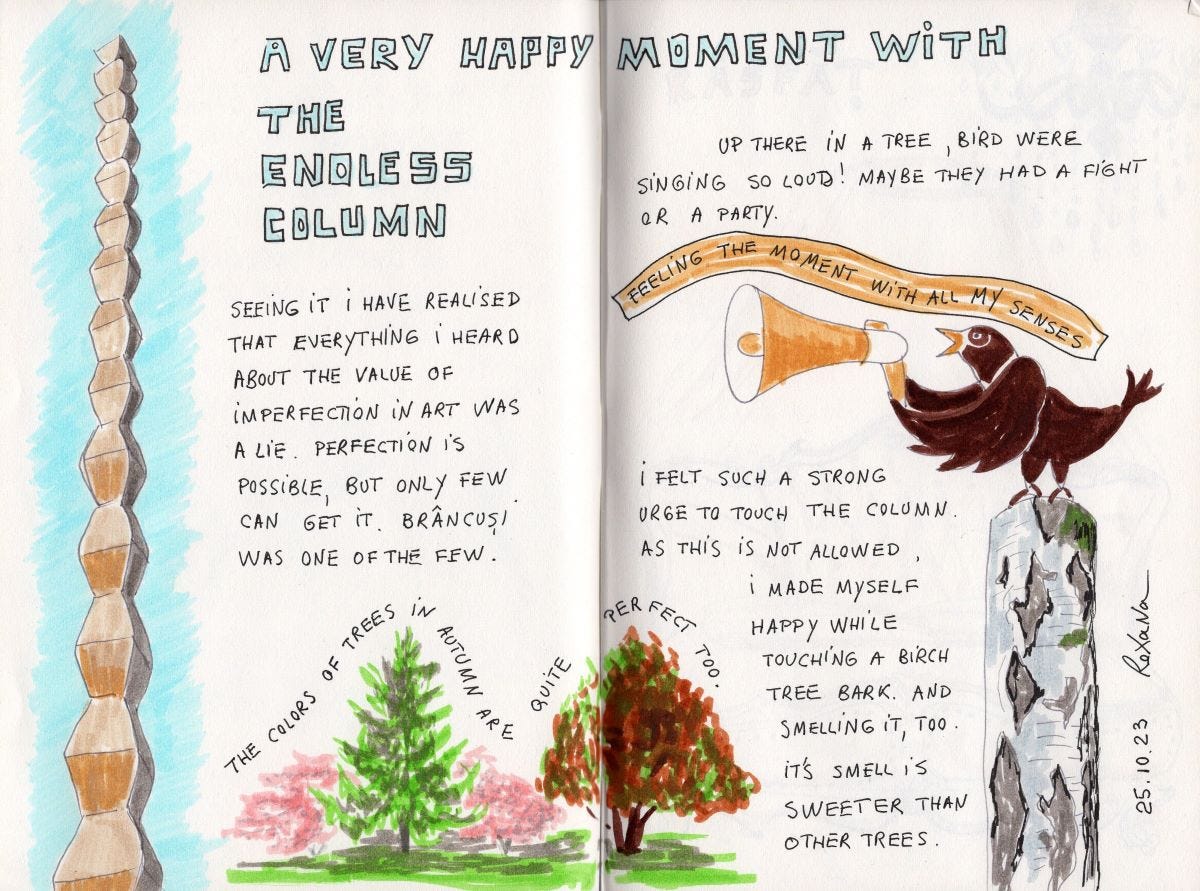 A VERY HAPPY MOMENT WITH
THE
ENDLESS
COLUMN
SEEING IT I HAVE REALISED
THAT EVERYTHING I HEARD
ABOUT THE VALUE OF
IMPERFECTION IN ART WAS
A LIE. PERFECTION IS
POSSIBLE, BUT ONLY FEW
CAN GET IT. BRÂNCUȘI
WAS ONE OF THE FEW.
THE COLORS OF TREES IN AUTUMN ARE QUITE PERFECT TOO.
UP THERE IN A TREE, BIRD WERE
SINGING SO LOUD! MAYBE THEY HAD A FIGHT
OR A PARTY.
FEELING THE MOMENT WITH ALL MY SENSES
I FELT SUCH A STRONG
URGE TO TOUCH THE COLUMN.
AS THIS IS NOT ALLOWED,
I MADE MYSELF
HAPPY WHILE
TOUCHING A BIRCH
TREE BARK. AND
SMELLING IT, TOO.
IT'S SMELL IS
SWEETER THAN
OTHER TREES.
25.10.23 RoXaNa